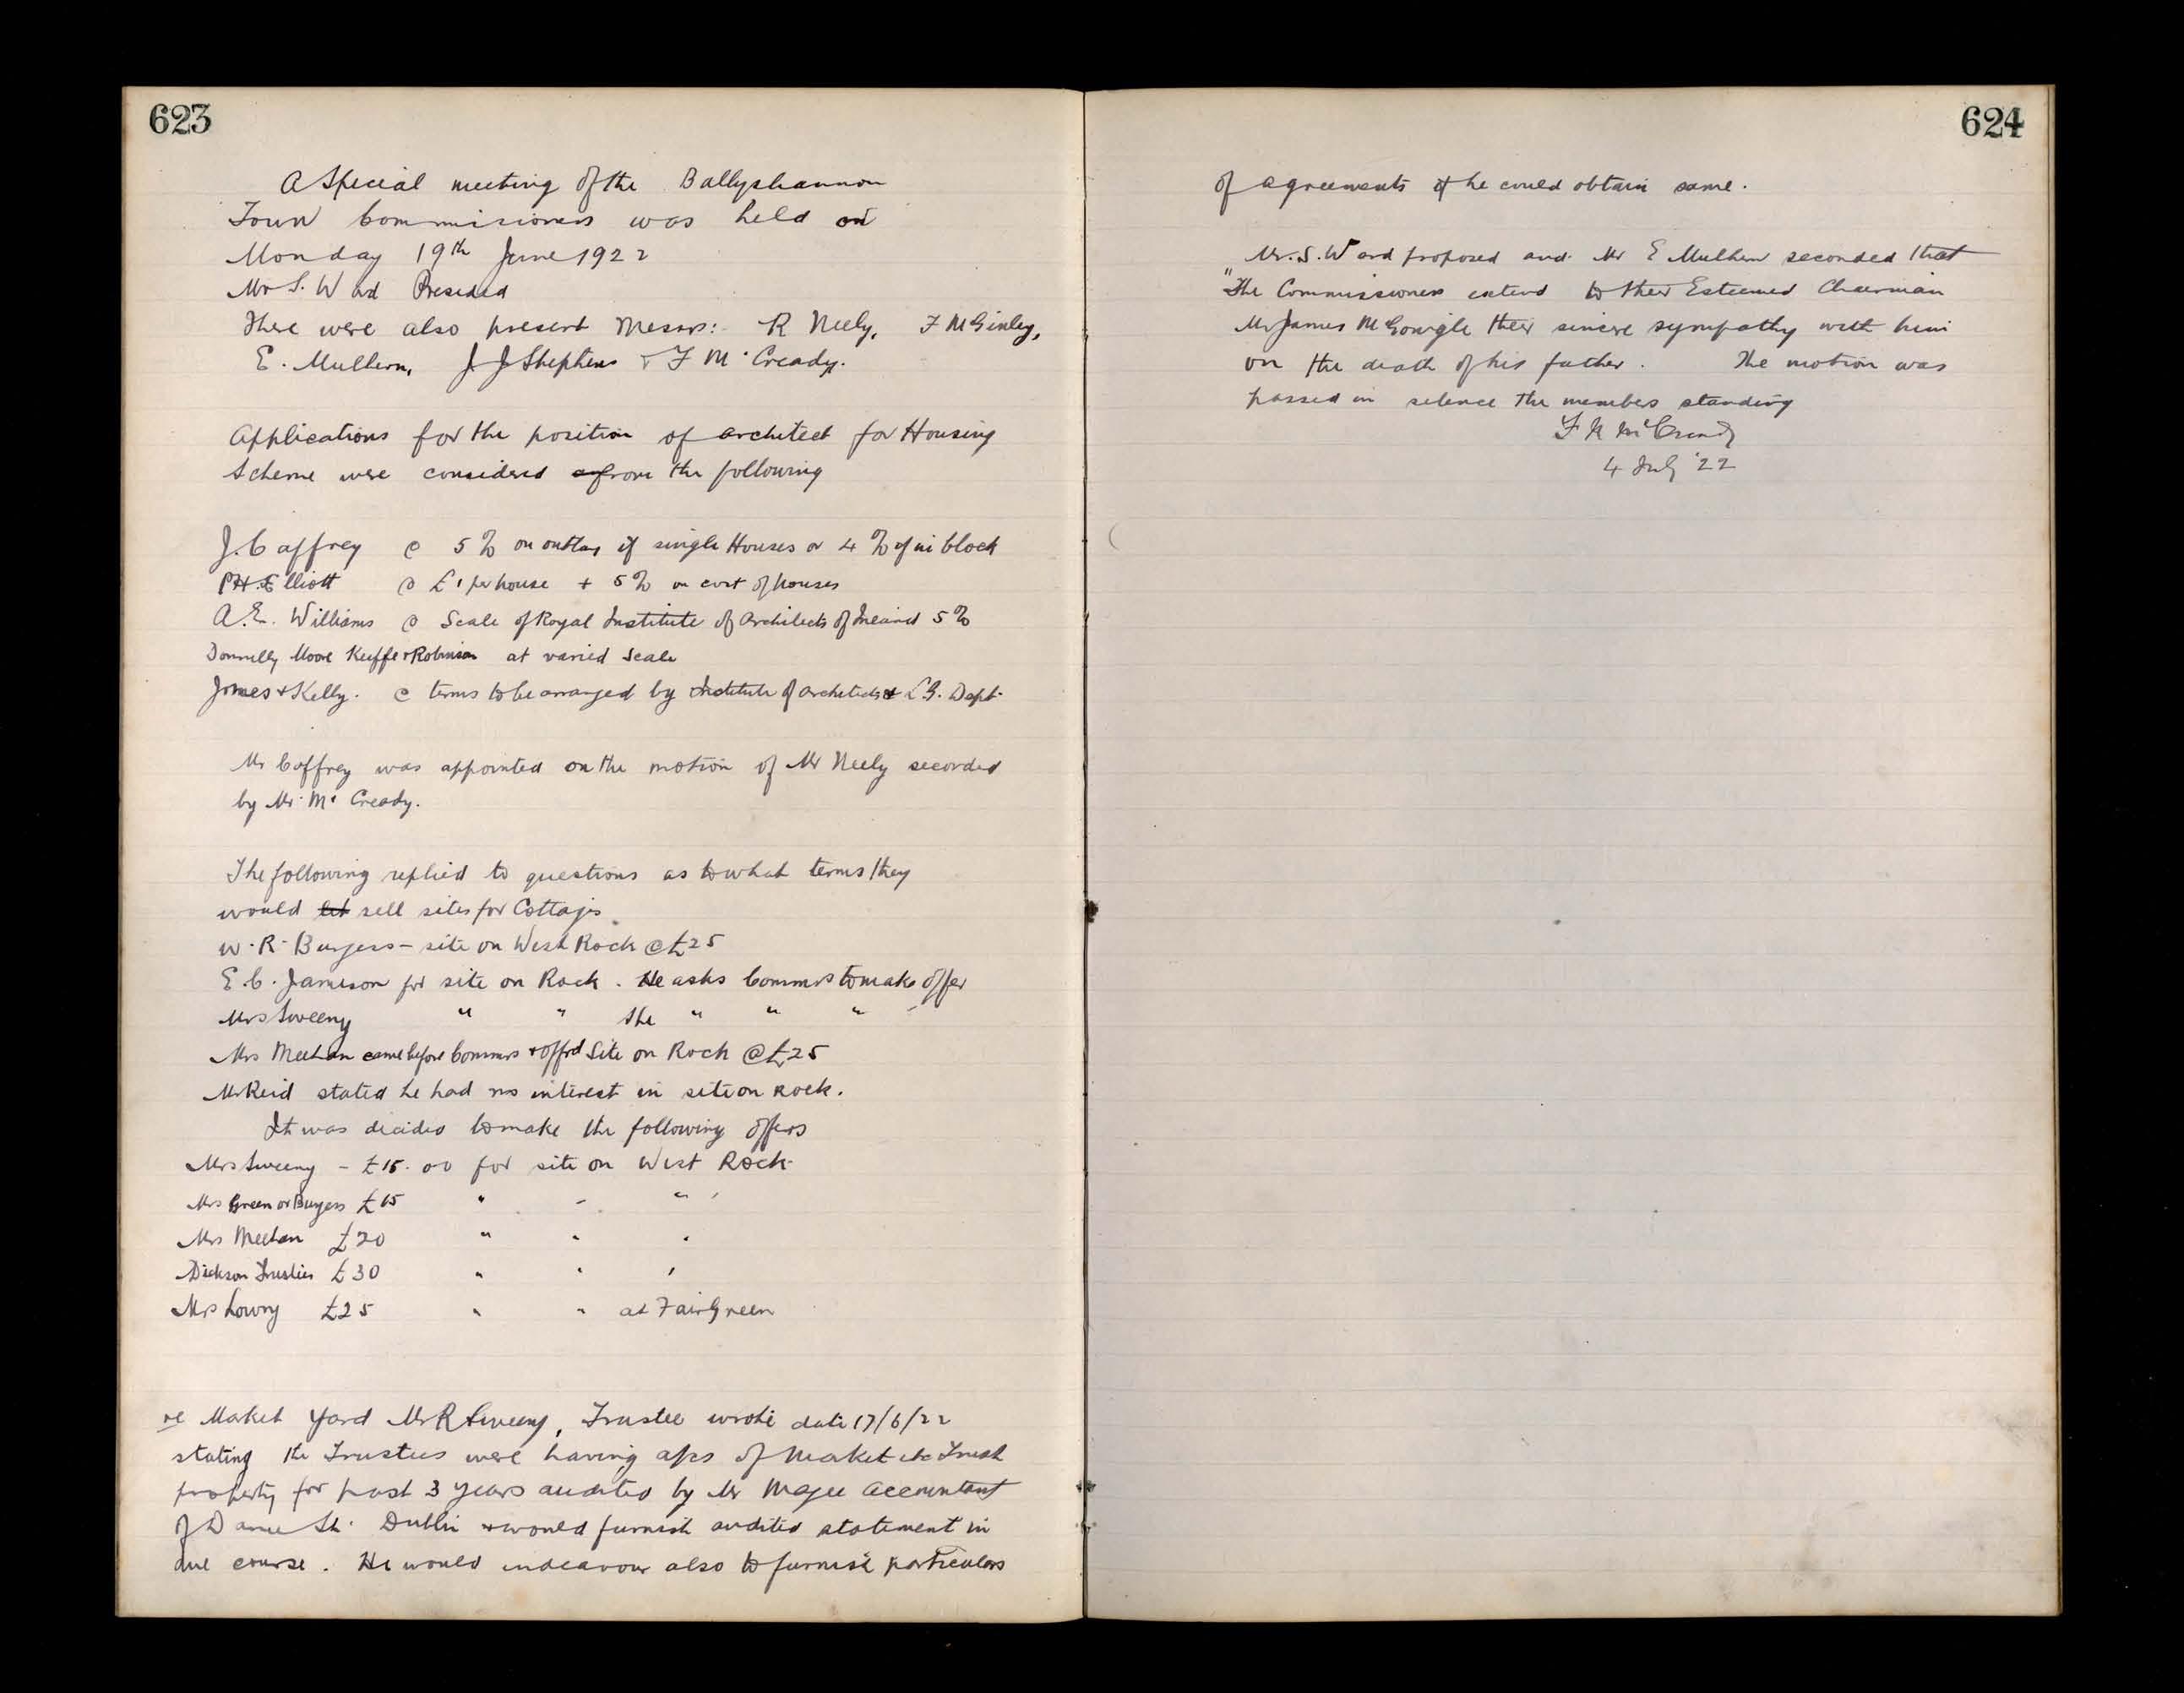 623
A Special meeting of the Ballyshannon
Town Commissioners was held on
Monday 19th June 1922
Mr S. Ward Presided
There were also present Messrs: R Neely, F McGinley,
E. Mulhern, J J Stephens & F Mc Cready.
Applications for the position of architect for Housing
Scheme were considered from the following
J. Caffrey @ 5% on outlay if single Houses or 4% if in block
P.H. Elliott @ £1 per house + 5% on cost of houses
A.E. Williams @ Scale of Royal Institute of Architects of Ireland 5%
Donnelly Moore Keeffe & Robinson at varied Scale
Jones & Kelly. @ terms to be arranged by Institute of Architects & L.G. Dept.
Mr Caffrey was appointed on the motion of Mr Neely seconded
by Mr. Mc Cready.
The following replied to questions as to what terms they
would let sell sites for Cottages
W. R. Burgess - site on West Rock @ £25
E. C. Jamison for site on Rock. He asks Commrs to make offer
Mrs Sweeny " " She " " "
Mrs Meehan came before Commrs & offrd Site on Rock @ £25
Mr Reid stated he had no interest in site on Rock.
It was decided to make the following offers
Mrs Sweeny - £15.00 for site on West Rock
Mrs Green or Burgess £15 " " " "
Mrs Meehan £20 " " "
Dickson Trustees £30 " " "
Mrs Lowry £25 " " at Fair Green
re Market Yard Mr R Sweeny, Trustee wrote date 17/6/22
stating the Trustees were having a/cs of Market etc Trust
property for past 3 years audited by Mr Magee Accountant
of Dame St. Dublin & would furnish audited statement in
due course. He would endeavour also to furnish particulars
624
of agreements if he could obtain same.
Mr. S. Ward proposed and Mr E Mulhern seconded that
"The Commissioners extend to their Esteemed Chairman
Mr James McGonigle their sincere sympathy with him
on the death of his father. The motion was
passed in silence the members standing
F McCready
4 July '22